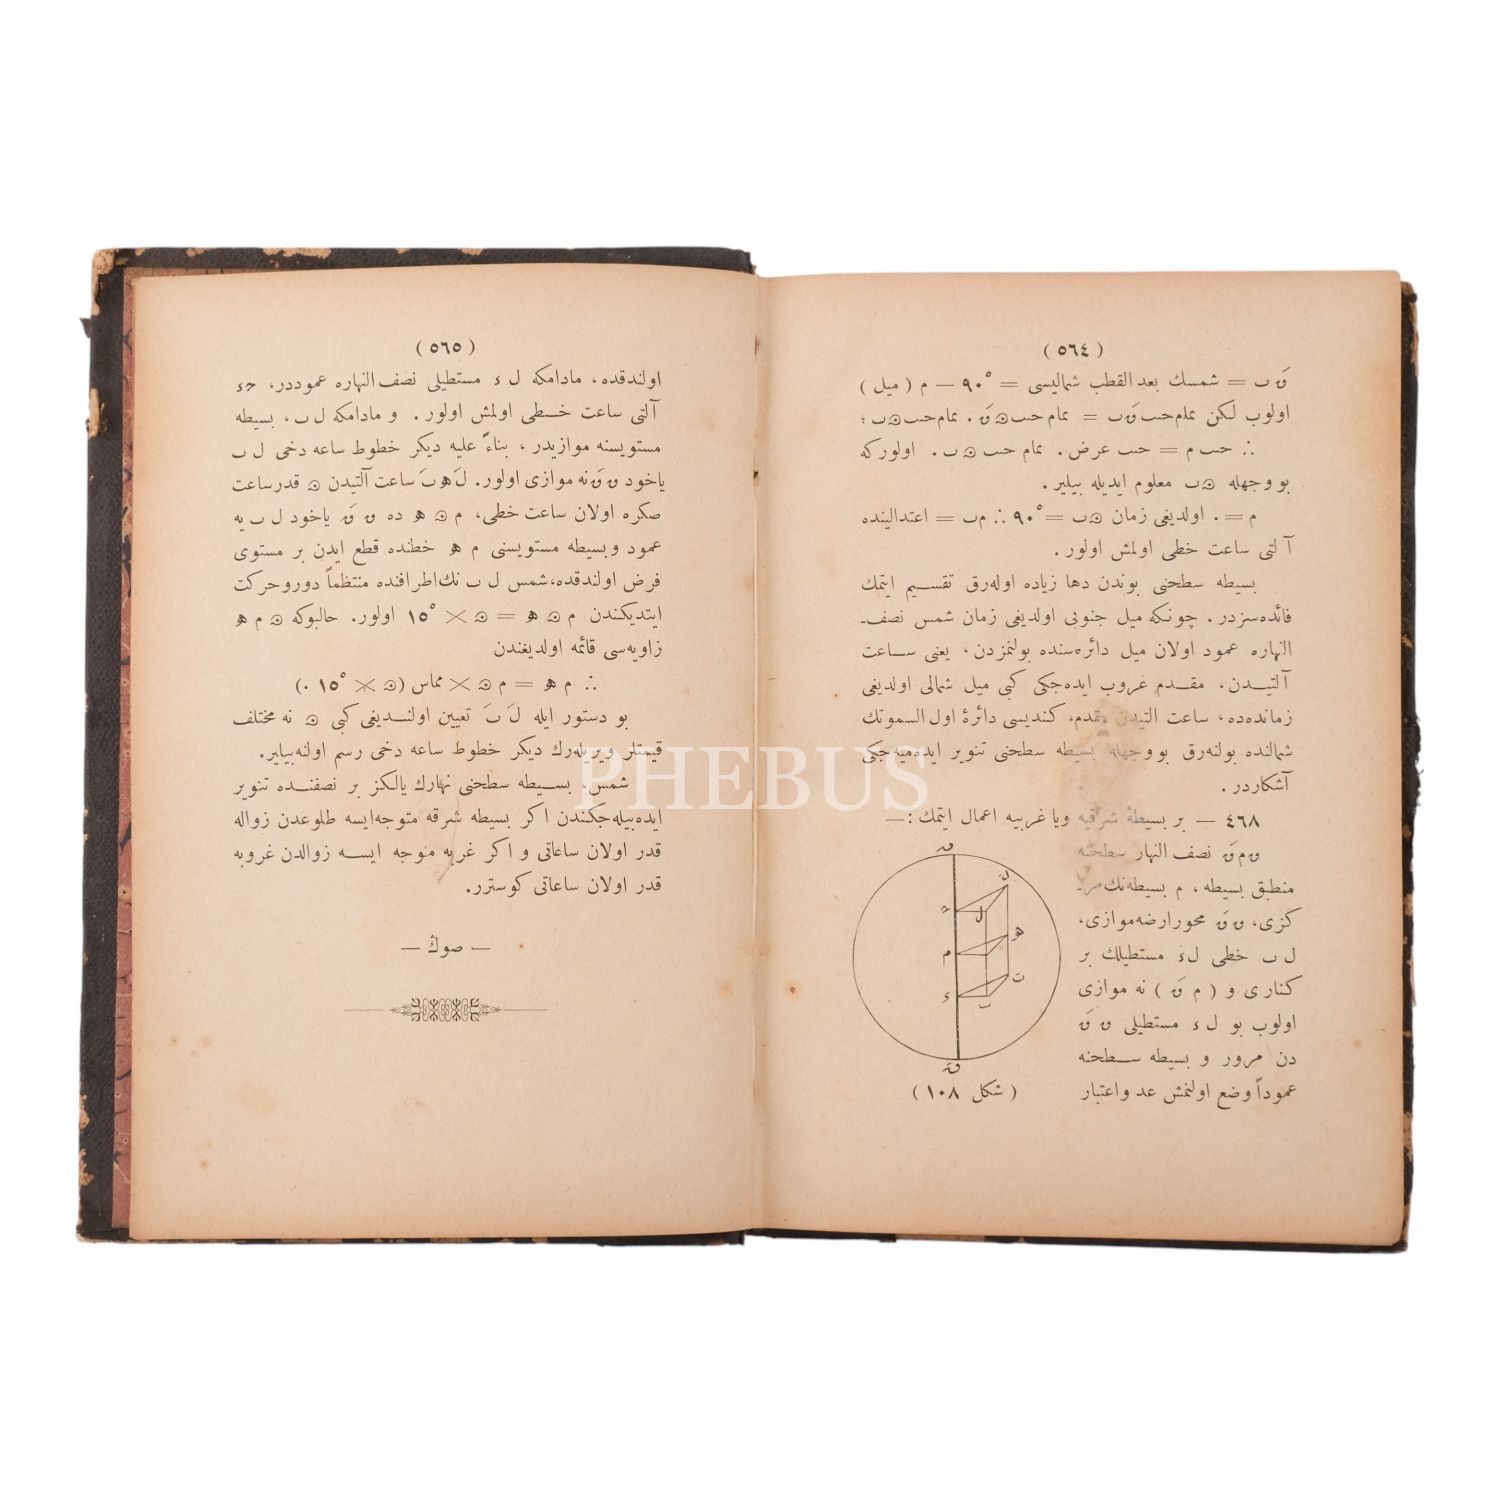 ( ٥٦٤ )
وَ ب = شمسك بعد القطب شماليسى = ٩٠° — م ( ميل )
اولوب لكن تمام حب وَ ب = تمام حب ۞ وَ . تمام حب ۞ ب ؛
∴ حب م = حب عرض . تمام حب ۞ ب . اولوركه
بو وجهله ۞ ب معلوم ايديله بيلير .
م = ٠ اولديغى زمان ۞ ب = ٩٠° ∴ م ب = اعتدالينده
آلتى ساعت خطى اولمش اولور .
بسيطه سطحنى بوندن دها زياده اوله‌رق تقسيم ايتمك
فائده‌سزدر . چونكه ميل جنوبى اولديغى زمان شمس نصف‌ـ
النهاره عمود اولان ميل دائره‌سنده بولنمزدن ، يعنى ساعت
آلتيدن ، مقدم غروب ايده‌جكى كبى ميل شمالى اولديغى
زمانده‌ده ، ساعت التيدن مقدم ، كنديسى دائرۀ اول السموتك
شمالنده بولنه‌رق بو وجهله بسيطه سطحنى تنوير ايده‌ميه‌جكى
آشكاردر .
٤٦٨ — بر بسيطۀ شرقيه ويا غربيه اعمال ايتمك : —
و م وَ نصف النهار سطحنه
منطبق بسيطه ، م بسيطه‌نك مر‌ـ
كزى ، و وَ محور ارضه موازى ،
ل ب خطى ل ء مستطيلك بر
كنارى و ( م وَ ) نه موازى
اولوب بو ل ء مستطيلى و وَ
دن مرور و بسيطه سطحنه
عموداً وضع اولنمش عد واعتبار
( شكل ١٠٨ )
( ٥٦٥ )
اولندقده ، مادامكه ل ء مستطيلى نصف النهاره عموددر ، حء
آلتى ساعت خطى اولمش اولور . و مادامكه ل ب ، بسيطه
مستويسنه موازيدر ، بناءً عليه ديكر خطوط ساعه دخى ل ب
ياخود و وَ نه موازى اولور . لَ ه بَ ساعت آلتيدن ۞ قدر ساعت
صكره اولان ساعت خطى ، م ۞ ه ده و وَ ياخود ل ب يه
عمود و بسيطه مستويسنى م ه خطنده قطع ايدن بر مستوى
فرض اولندقده ، شمس ل ب نك اطرافنده منتظماً دور و حركت
ايتديكندن م ۞ ه = ۞ × ١٥° اولور . حالبوكه ۞ م ه
زاويه‌سى قائمه اولديغندن
∴ م ه = م ۞ × مماس (۞ × ١٥° ٠)
بو دستور ايله لَ بَ تعيين اولنديغى كبى ۞ نه مختلف
قيمتلر ويريله‌رك ديكر خطوط ساعه دخى رسم اولنه‌بيلير .
شمس ، بسيطه سطحنى نهارك يالكز بر نصفنده تنوير
ايده‌بيله‌جكندن اكر بسيطه شرقه متوجه ايسه طلوعدن زواله
قدر اولان ساعاتى و اكر غربه متوجه ايسه زوالدن غروبه
قدر اولان ساعاتى كوسترر .
— صوڭ —
PHEBUS